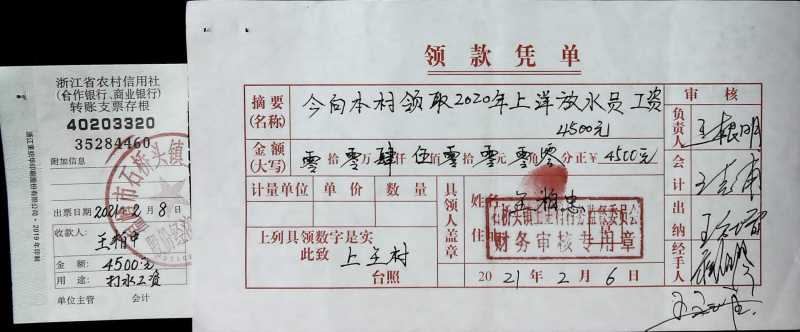 浙江省农村信用社
(合作银行、商业银行)
转账支票存根
40203320
35284460
附加信息
出票日期 2021年2月8日
收款人:
王柏中
金 额: 4500元
用 途: 打水工资
单位主管 会计
领款凭单
摘要(名称) 今向本村领取2020年上洋放水员工资
4500元
金额(大写) 零拾零万肆仟伍佰零拾零元零角零分正¥4500元
计量单位 单价 数量
具领人盖章
姓名
住址
上列具领数字是实
此致 上王村
台照
财务审核专用章
2021年2月6日
审核
负责人 王根明
会计
出纳
经手人